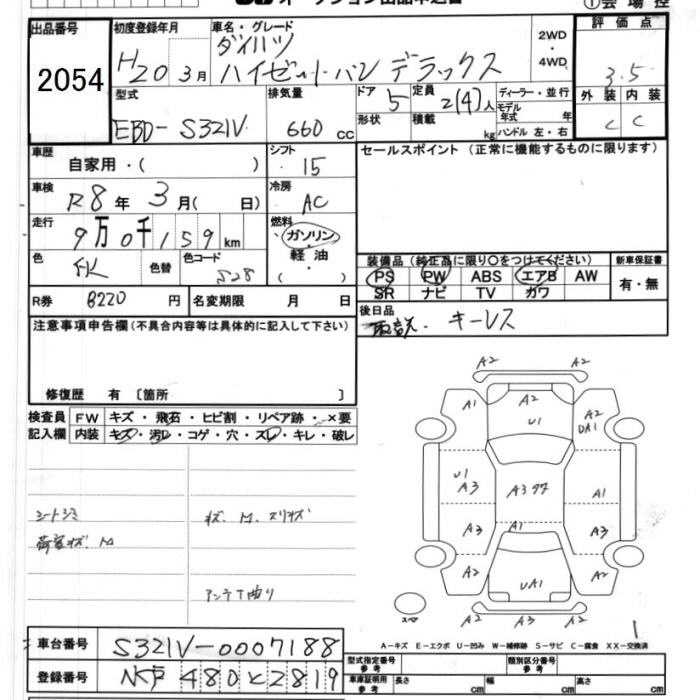 オークション出品申込書
①会場控
出品番号 2054
初度登録年月 H20 3月
車名・グレード ダイハツ
ハイゼットバン デラックス
2WD・4WD
評価点 3.5
外装 C 内装 C
型式 EBD-S321V
排気量 660 cc
ドア 5 形状
定員 2(4)人 積載 kg
ディーラー・並行
モデル年式 年
ハンドル 左・右
車歴 自家用・( )
シフト ・15
セールスポイント (正常に機能するものに限ります)
車検 R8年 3月( 日)
冷房 AC
走行 9万0千159km
燃料 ガソリン・軽油・( )
色 色替
色コード S28
装備品 (純正品に限り○をつけてください)
PS PW ABS エアB AW
SR ナビ TV カワ
新車保証書 有・無
R券 8220 円
名変期限 月 日
後日品 取説. キーレス
注意事項申告欄 (不具合内容等は具体的に記入して下さい)
修復歴 有 〔箇所 〕
検査員記入欄
FW キズ・飛石・ヒビ割・リペア跡・×要
内装 キズ・汚レ・コゲ・穴・スレ・キレ・破レ
シートシミ
荷室キズ. M
キズ. M. スリキズ
アンテナ曲り
A2 A2
A1 A2 A2
U1 UA1
U1
A3 A3 A1
A3 A1 A3
A2 UA1 A2
A2 A3 A2
スペ
A-キズ E-エクボ U-凹み W-補修跡 S-サビ C-腐食 XX-交換済
車台番号 S321V-0007188
登録番号 480 と 2819
型式指定番号 参考
類別区分番号 参考
車庫証明用 参考 長さ cm 幅 cm 高さ cm